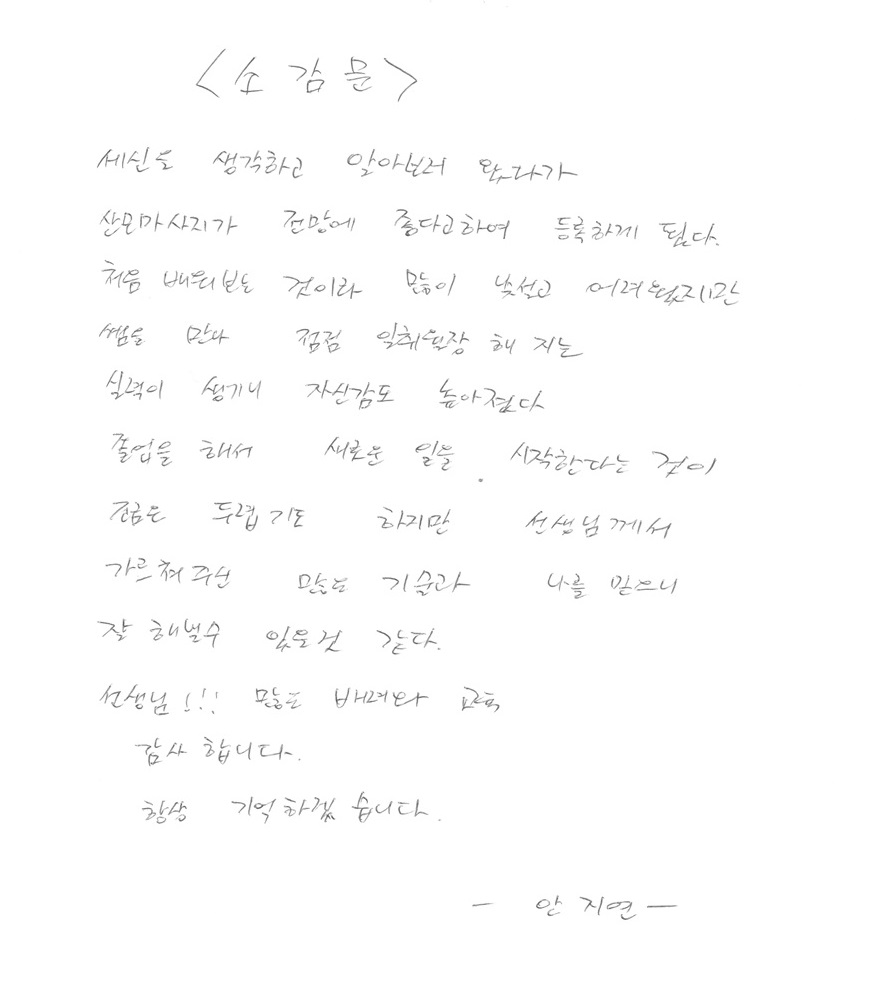 <소감문>
세신을 생각하고 알아보러 왔다가
산모마사지가 전망에 좋다고하여 등록하게 됬다.
처음 배워보는 것이라 많이 낯설고 어려웠지만
쌤을 만나 점점 일취월장 해 지는
실력이 생기니 자신감도 높아졌다
졸업을 해서 새로운 일을 시작한다는 것이
조금은 두렵기도 하지만 선생님께서
가르쳐주신 많은 기술과 나를 믿으니
잘 해낼수 있을것 같다.
선생님!!! 많은 배려와 교육
감사 합니다.
항상 기억하겠습니다.
- 안지연 -